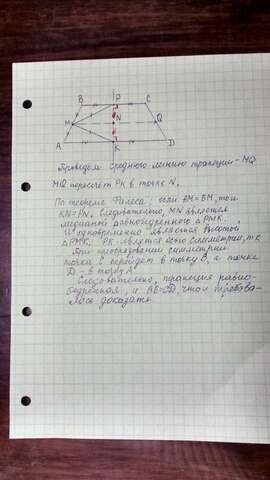 B P C
M N Q
A K D
Проведем среднюю линию трапеции - MQ
MQ пересечёт PK в точке N.
По теореме Фалеса, если AM=BM, то и
KN=PN. Следовательно, MN является
медианой равнобедренного △PMK.
И одновременно является высотой
△PMK. PK является осью симметрии, т.к.
При преобразовании симметрии
точка C перейдет в точку B, а точка
D - в точку A.
Следовательно, трапеция равно-
бедренная, и AB=CD, что и требова-
лось доказать.